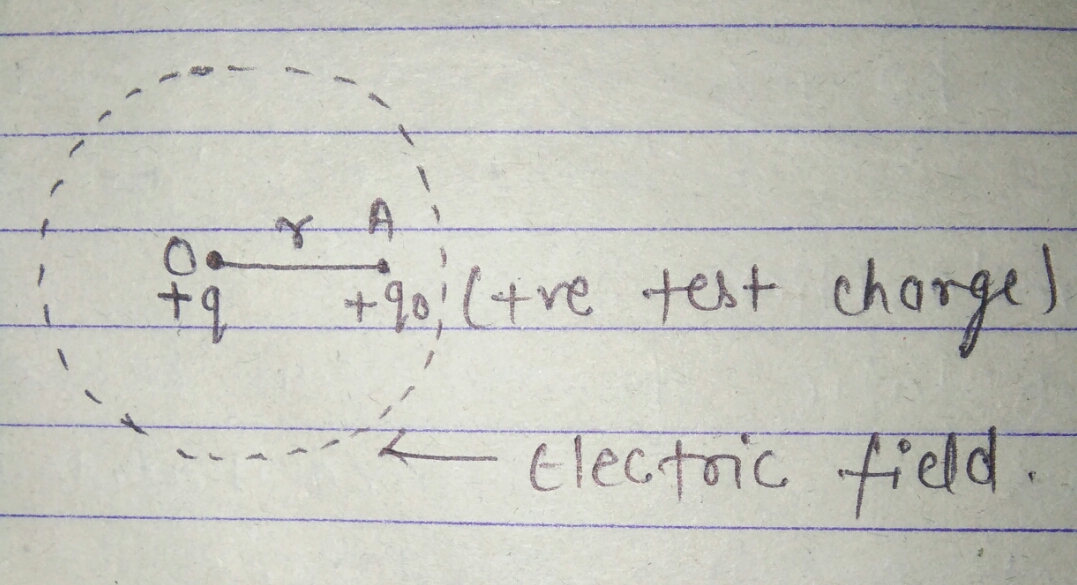 r A
O
+q +q0 (+ve test charge)
Electric field.